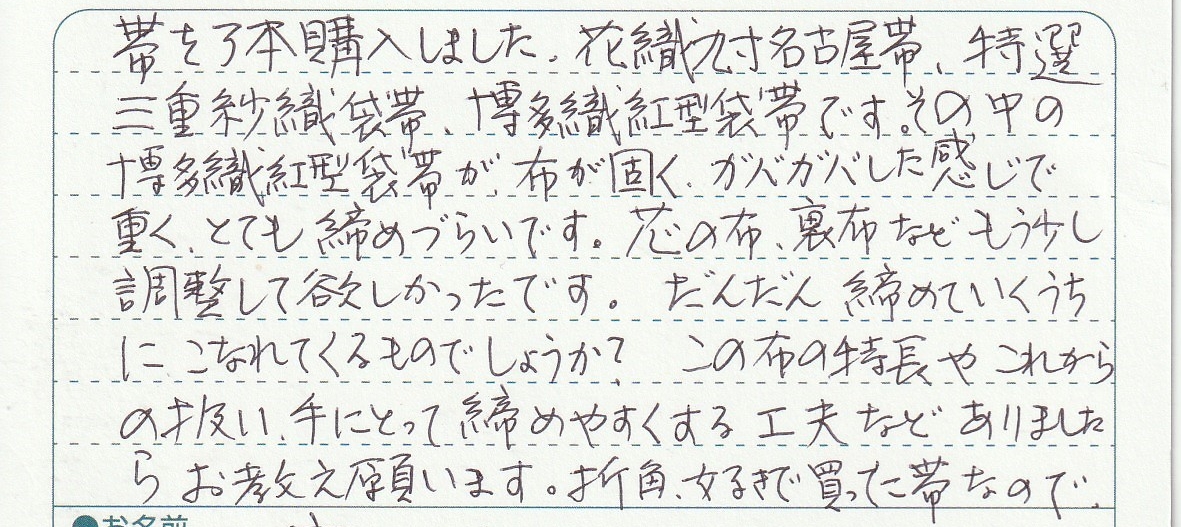 帯を3本購入しました。花織九寸名古屋帯、特選
三重紗織袋帯、博多織紅型袋帯です。その中の
博多織紅型袋帯が、布が固く、ガバガバした感じで
重く、とても締めづらいです。芯の布、裏布などもう少し
調整して欲しかったです。だんだん締めていくうち
にこなれてくるものでしょうか?この布の特長やこれから
の扱い、手にとって締めやすくする工夫などありました
らお教え願います。折角、好きで買った帯なので、
●お名前